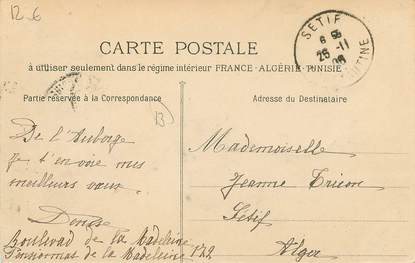 12_6
CARTE POSTALE
à utiliser seulement dans le régime intérieur FRANCE - ALGÉRIE - TUNISIE
Partie réservée à la Correspondance
Adresse du Destinataire
SETIF
26 -11
De l'Auberge
je t'envoie mes
meilleurs vœux.
Denise
Boulevad de la Madeleine
Pensionnat de la Madeleine 172
Mademoiselle
Jeanne
Sétif
Alger